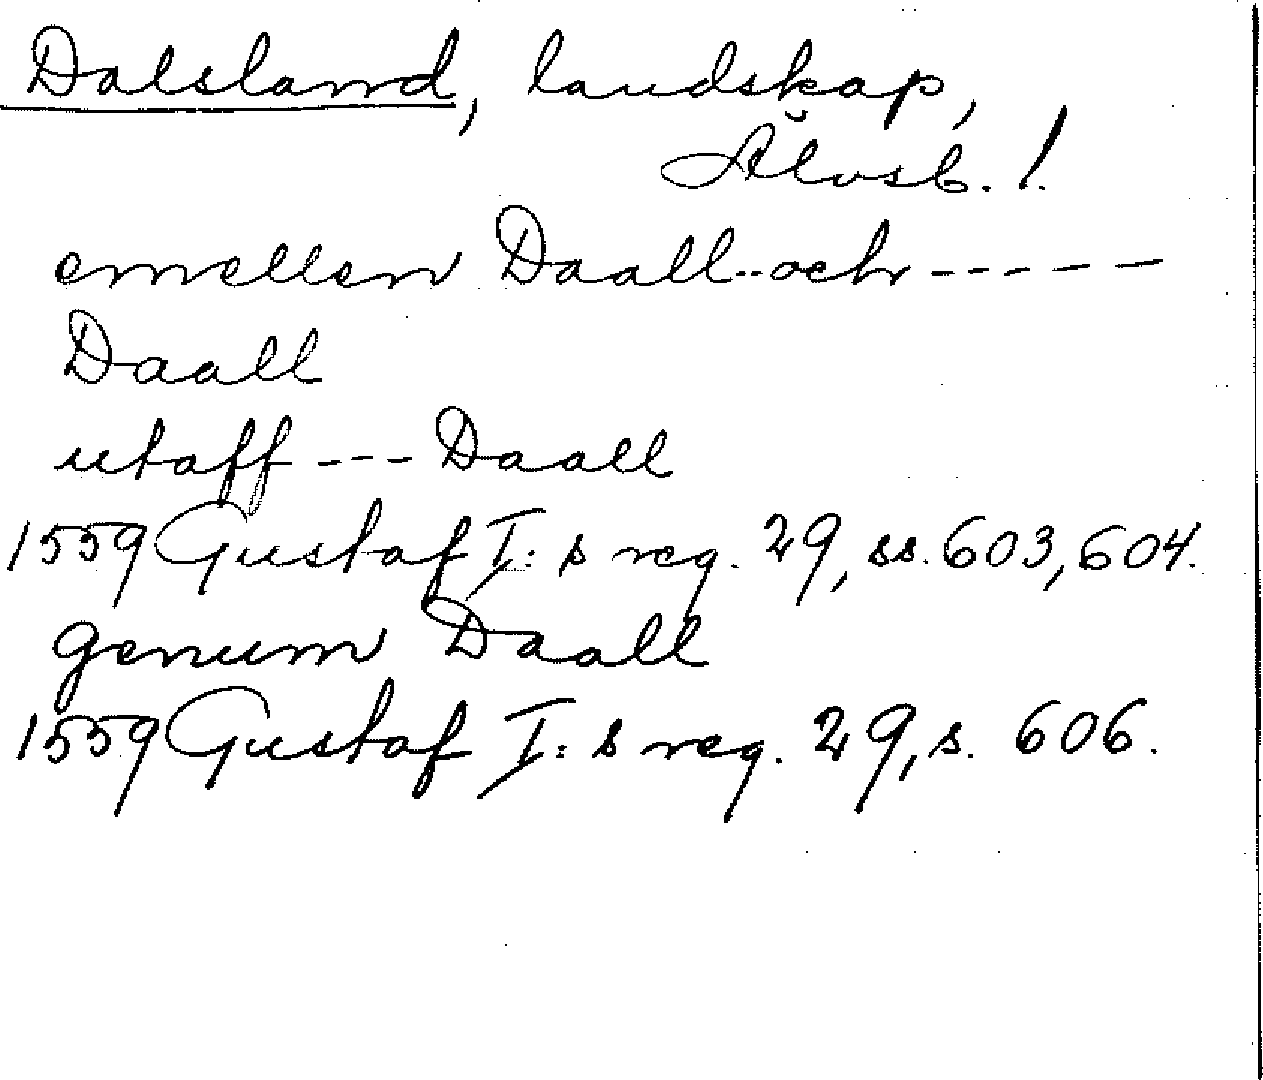 Dalsland, landskap,
Älvsb. l.
emellen Daall..och -----
Daall
utaff --- Daall
1559 Gustaf I:s reg. 29, ss. 603, 604.
genum Daall
1559 Gustaf I:s reg. 29, s. 606.